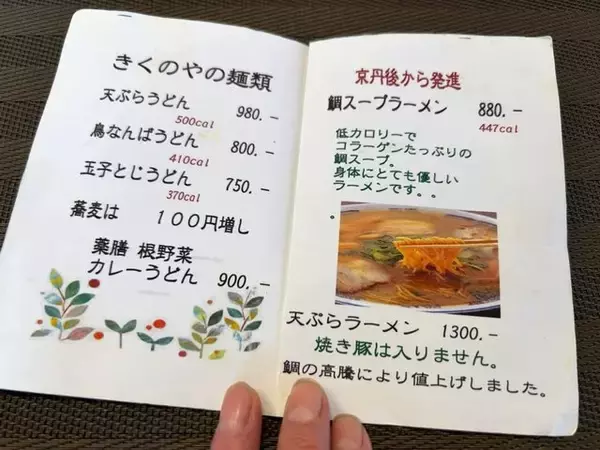 きくのやの麺類
天ぷらうどん 980.-
500cal
鳥なんばうどん 800.-
410cal
玉子とじうどん 750.-
370cal
蕎麦は 100円増し
薬膳 根野菜
カレーうどん 900.-
京丹後から発進
鯛スープラーメン 880.-
447cal
低カロリーで
コラーゲンたっぷりの
鯛スープ。
身体にとても優しい
ラーメンです。。
。
天ぷらラーメン 1300.-
焼き豚は入りません。
鯛の高騰により値上げしました。